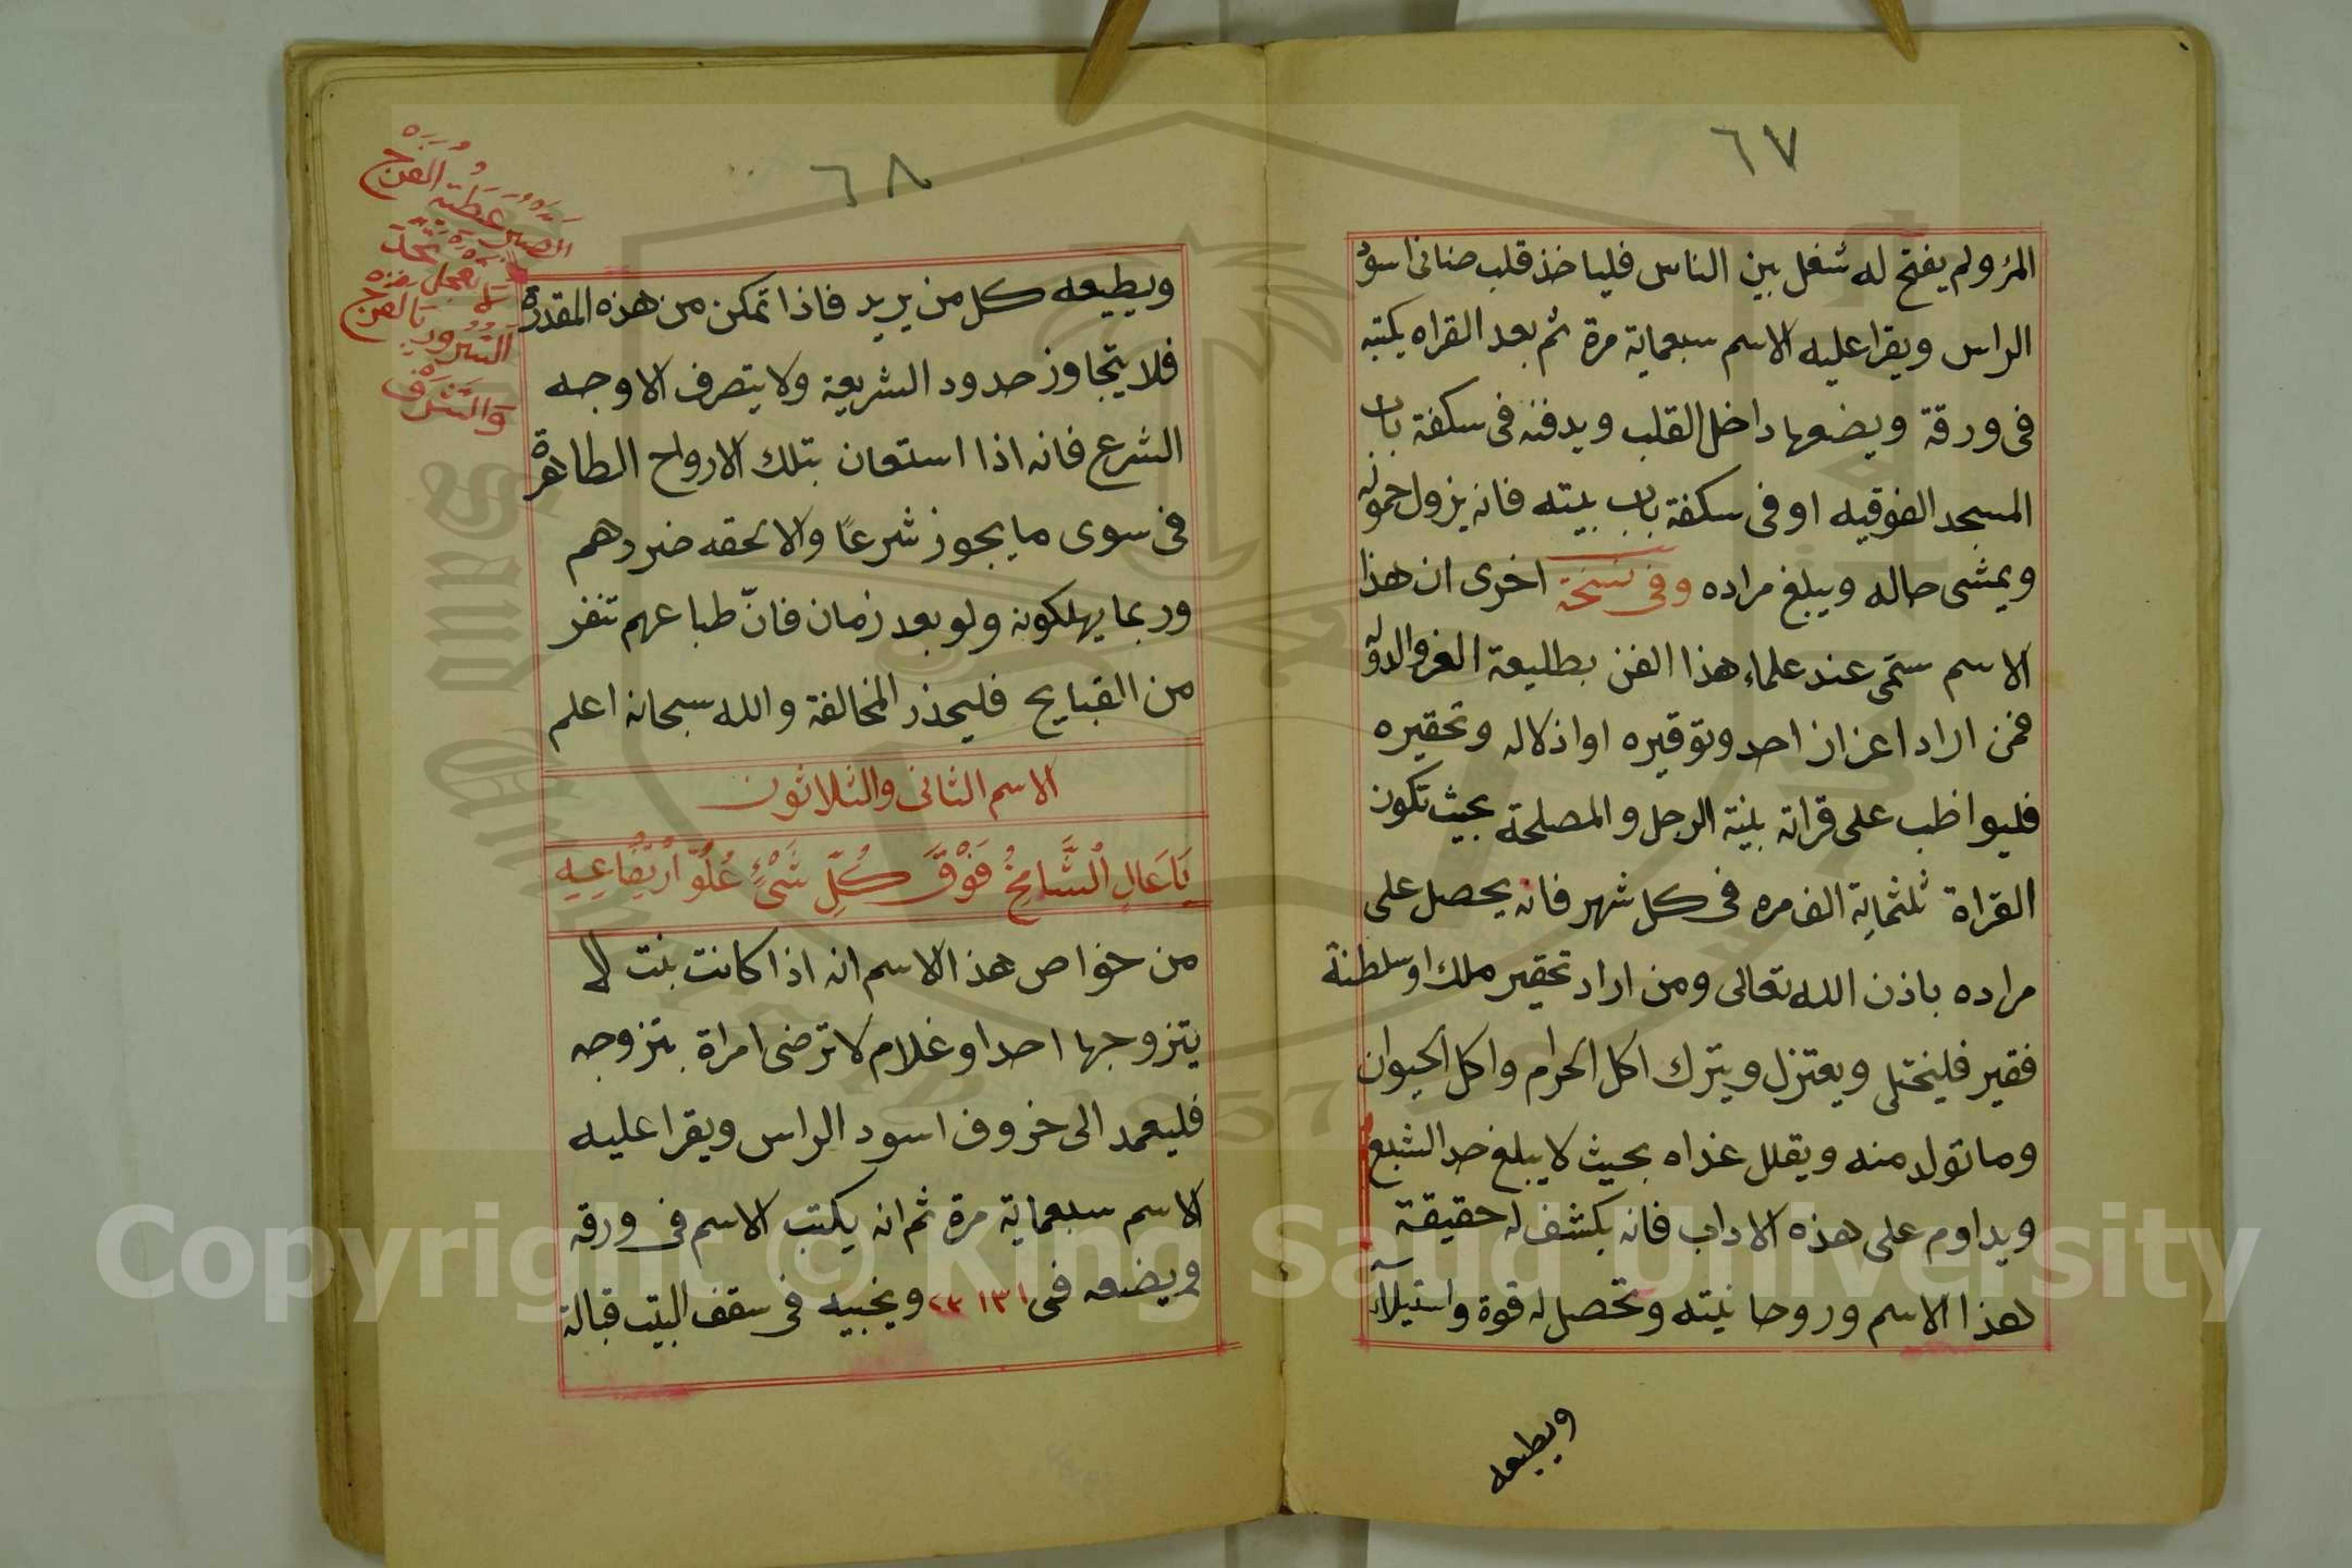 ٦٧
المرؤ ولم يفتح له شغل بين الناس فلياخذ قلب ضانى اسود
الراس ويقرا عليه الاسم سبعماية مرة ثم بعد القراه يكتبه
فى ورقة ويضعها داخل القلب ويدفنه فى سكفة باب
المسجد الفوقيه او فى سكفة باب بيته فانه يزول خموله
ويمشى حاله ويبلغ مراده وفى نسخة اخرى ان هذا
الاسم ستمى عند علماء هذا الفن بطليعة العز والدولة
فمن اراد اعزاز احد وتوقيره او اذلاله وتحقيره
فليواظب على قراته بنية الرجل والمصلحة بحيث تكون
القراة ثلثماية الف مره فى كل شهر فانه يحصل على
مراده باذن الله تعالى ومن اراد تحقير ملك او سلطنة
فقير فليختلى ويعتزل ويترك اكل الحرام واكل الحيوان
وما تولد منه ويقلل غداه بحيث لا يبلغ حد الشبع
ويداوم على هذه الاداب فانه يكشف له حقيقة
هذا الاسم وروحانيته وتحصل له قوة واستيلآء
ويطيعه
٦٨
ويطيعه كل من يريد فاذا تمكن من هذه المقدرة
فلا يتجاوز حدود الشريعة ولا يتصرف الا وجه
الشرع فانه اذا استعان بتلك الارواح الطاهرة
فى سوى ما يجوز شرعًا والا لحقه ضررهم
وربما يهلكونه ولو بعد زمان فانّ طباعهم تنفر
من القبايح فليحذر المخالفة والله سبحانه اعلم
الاسم الثانى والثلاثون
يَا عَالِ الْشَّامِخُ فَوْقَ كُلِّ شَىْءٍ عُلُوّ اْرْتِفَاعِيهِ
من خواص هذ الاسم انه اذا كانت بنت لا
يتزوجها احد او غلام لا ترضى امراة بتزوجه
فليعمد الى خروف اسود الراس ويقرا عليه
الاسم سبعماية مرة ثم انه يكتب الاسم فى ورقه
ويضعه فى ١٣١ ٢٣ ويخبيه فى سقف البيت قبالة
الصبر
الفرج
تعجل
السرور بالفرج
والشرف
Copyright © King Saud University
1957